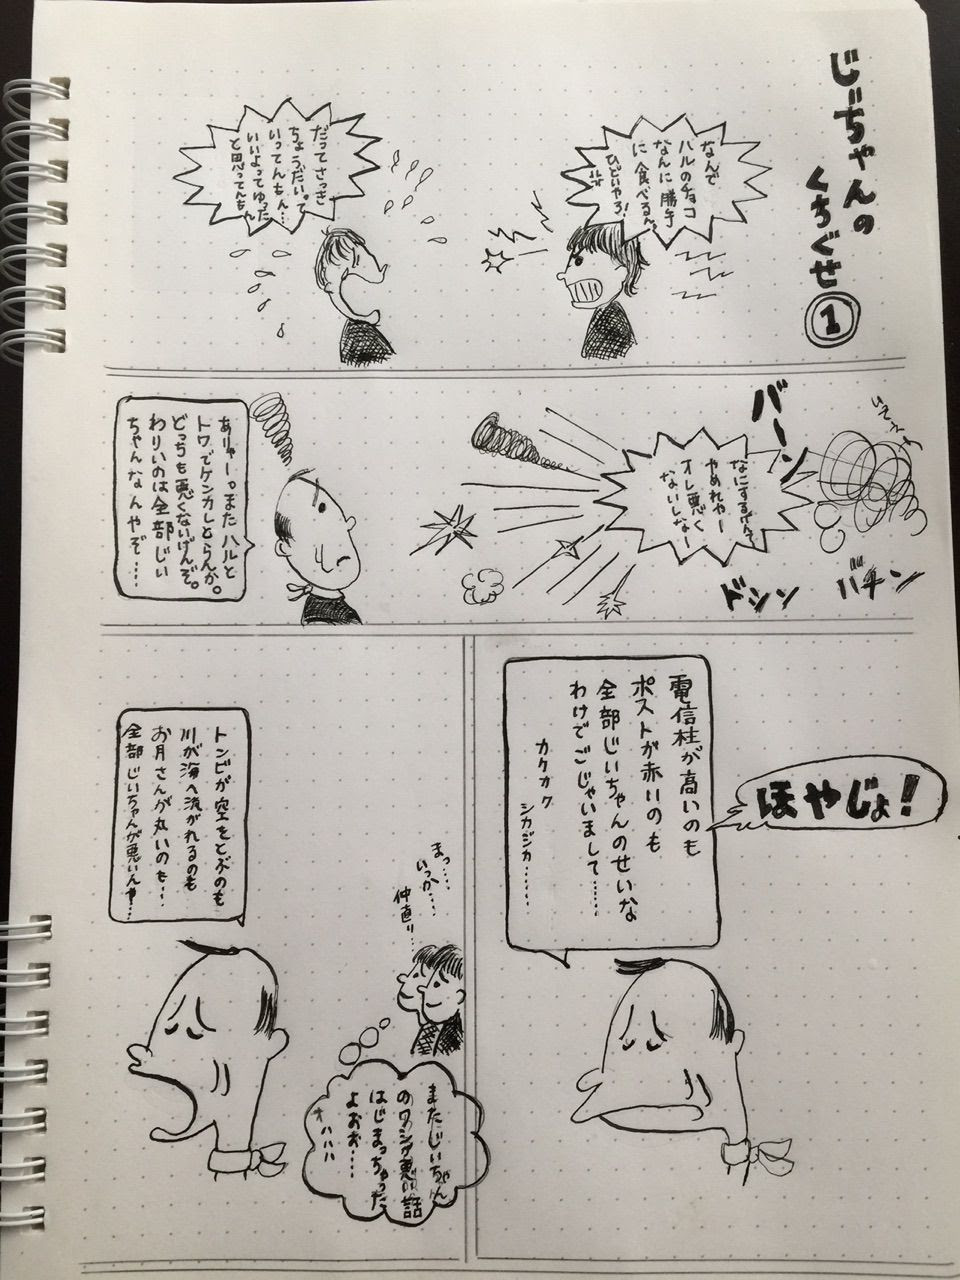 じぃちゃんの
くちぐせ①
なんで
ハルのチョコ
なんに勝手
に食べるん。
ひどいやろ!
だってさっき
ちょうだい。て
いってんもん…
いいよってゆった
と思ってんもん
いてー
バーン
なにするげんて
やめれやー
オレ悪く
ないしなー
ドシン
バチン
ありゃー。またハルと
トワでケンカしとらんか。
どっちも悪くないげんぞ。
わりいのは全部じぃ
ちゃんなんやぞ……
ほやじょ!
電信柱が高いのも
ポストが赤いのも
全部じいちゃんのせいな
わけでごじゃいまして……
カクカク
シカジカ………
トンビが空をとぶのも
川が海へ流がれるのも
お月さんが丸いのも…
全部じいちゃんが悪いんや…
まっ……
いっか……
仲直り…
またじいちゃん
のワシが悪い話
はじまっちゃった
よおお……
オハハハ